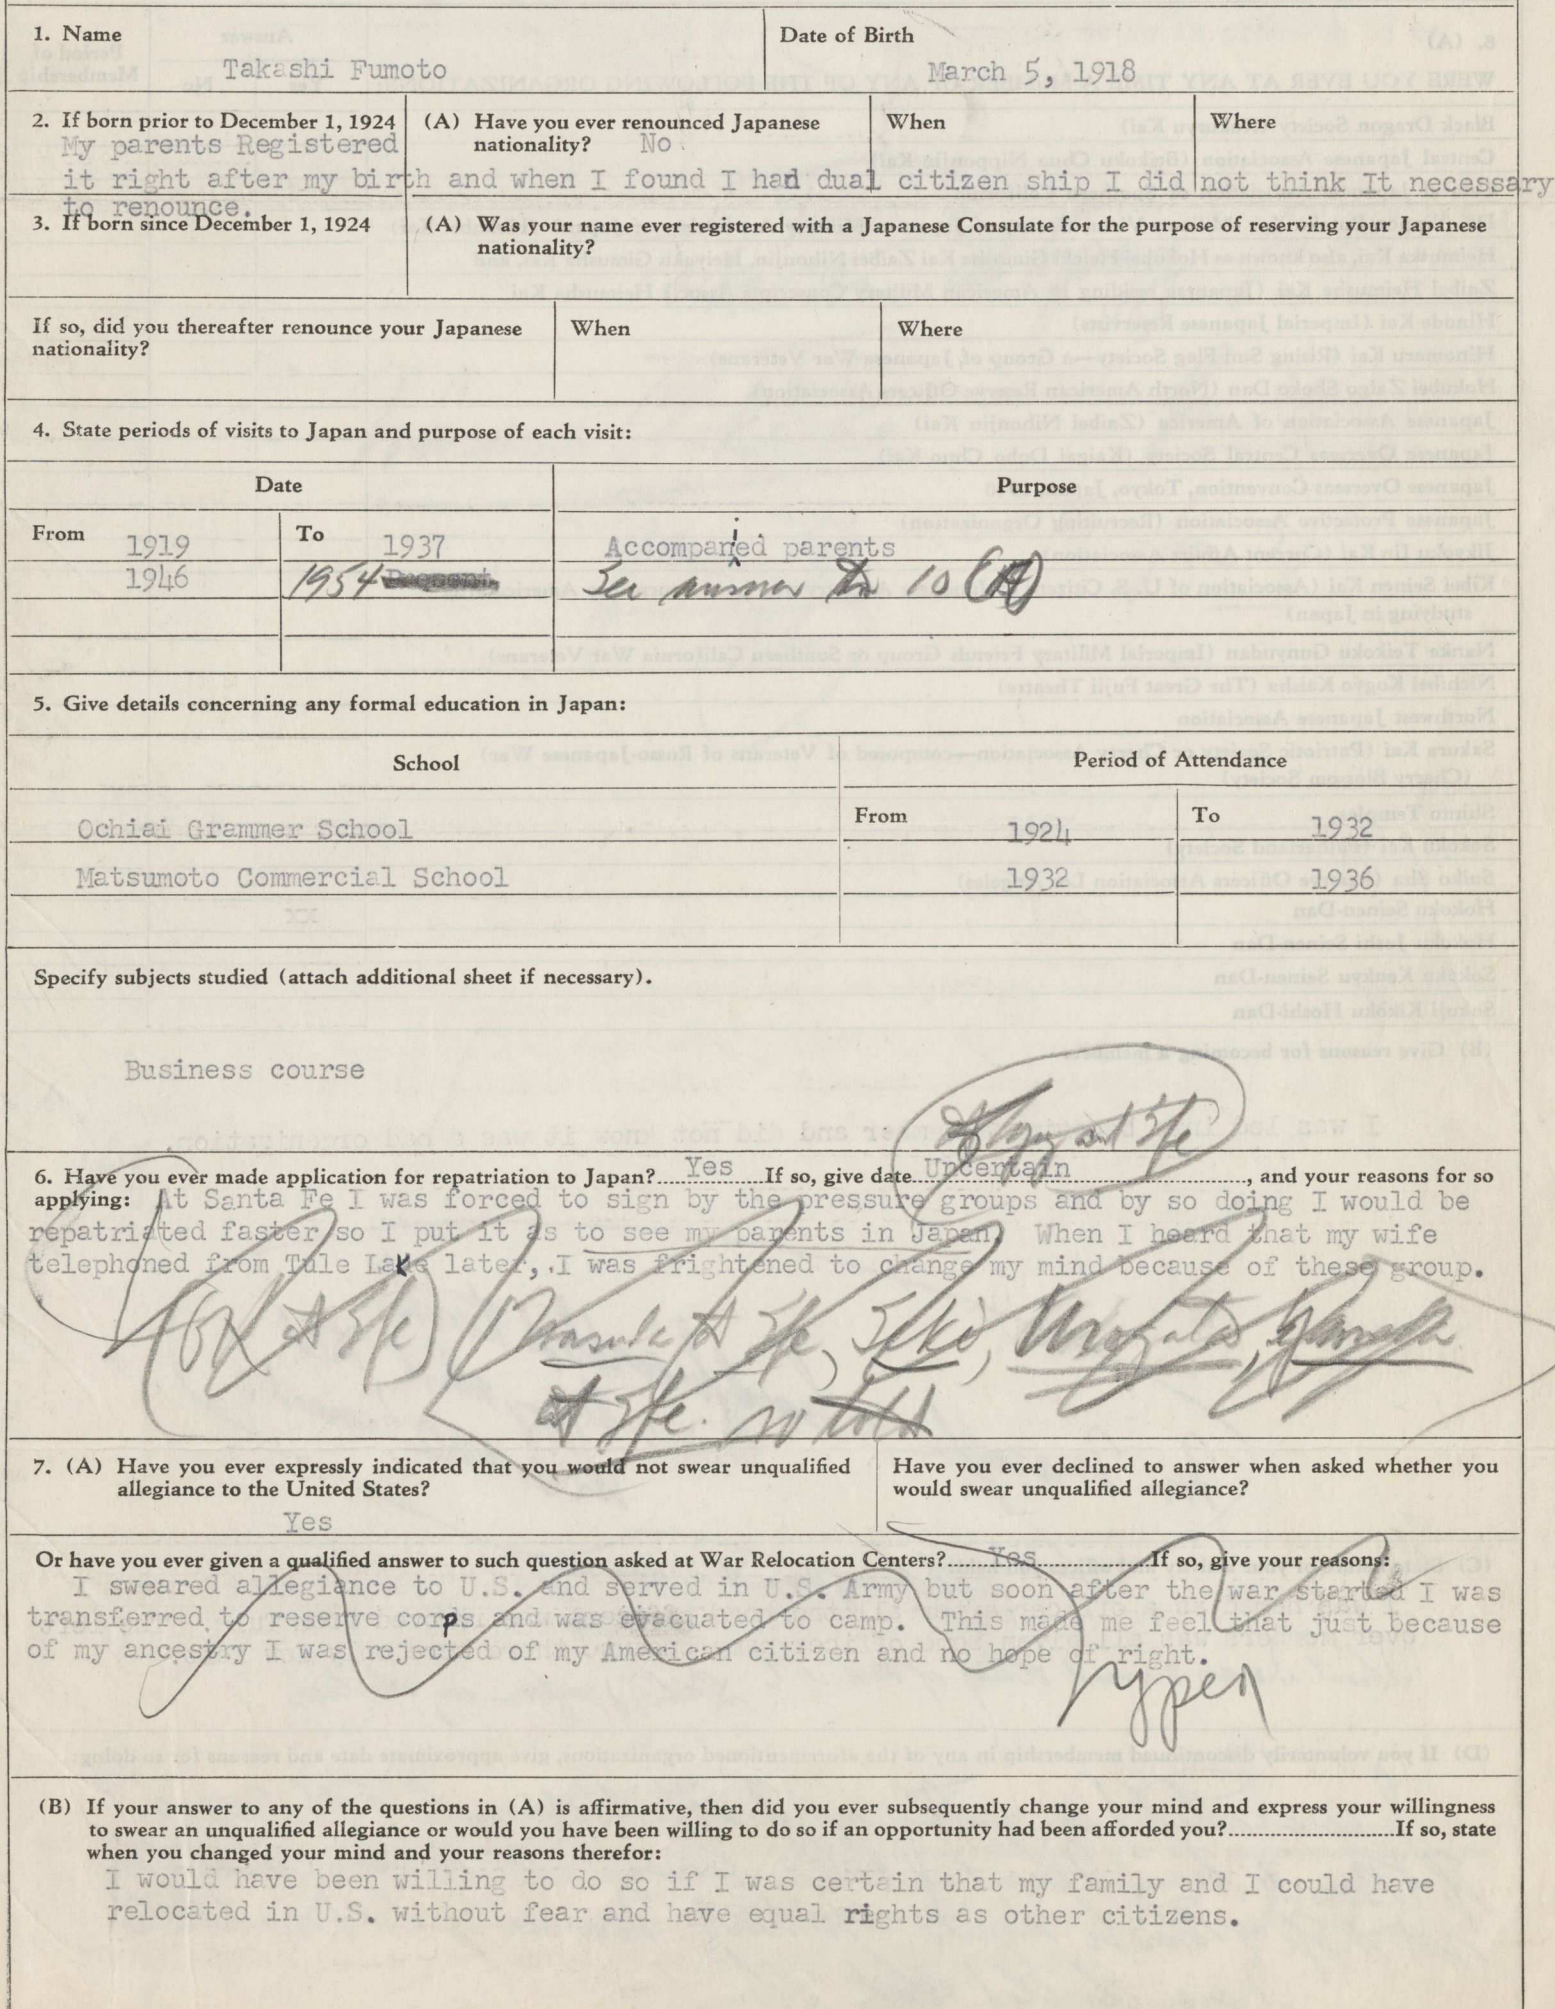 1. Name
Takashi Fumoto
Date of Birth
March 5, 1918
2. If born prior to December 1, 1924
(A) Have you ever renounced Japanese
nationality? No.
When
Where
My parents Registered
it right after my birth and when I found I had dual citizen ship I did not think It necessary
to renounce.
3. If born since December 1, 1924
(A) Was your name ever registered with a Japanese Consulate for the purpose of reserving your Japanese
nationality?
If so, did you thereafter renounce your Japanese
nationality?
When
Where
4. State periods of visits to Japan and purpose of each visit:
Date
Purpose
From 1919 To 1937 Accompanied parents
1946 1954 See answer to 10 (A)
5. Give details concerning any formal education in Japan:
School
Period of Attendance
From
To
Ochiai Grammer School 1924 1932
Matsumoto Commercial School 1932 1936
Specify subjects studied (attach additional sheet if necessary).
Business course
6. Have you ever made application for repatriation to Japan? Yes If so, give date Uncertain, and your reasons for so
applying: At Santa Fe I was forced to sign by the pressure groups and by so doing I would be
repatriated faster so I put it as to see my parents in Japan. When I heard that my wife
telephoned from Tule Lake later, I was frightened to change my mind because of these group.
at Sfe.
7. (A) Have you ever expressly indicated that you would not swear unqualified
allegiance to the United States?
Yes
Have you ever declined to answer when asked whether you
would swear unqualified allegiance?
Or have you ever given a qualified answer to such question asked at War Relocation Centers? Yes If so, give your reasons:
I sweared allegiance to U.S. and served in U.S. Army but soon after the war started I was
transferred to reserve corps and was evacuated to camp. This made me feel that just because
of my ancestry I was rejected of my American citizen and no hope of right.
typed
(B) If your answer to any of the questions in (A) is affirmative, then did you ever subsequently change your mind and express your willingness
to swear an unqualified allegiance or would you have been willing to do so if an opportunity had been afforded you? If so, state
when you changed your mind and your reasons therefor:
I would have been willing to do so if I was certain that my family and I could have
relocated in U.S. without fear and have equal rights as other citizens.